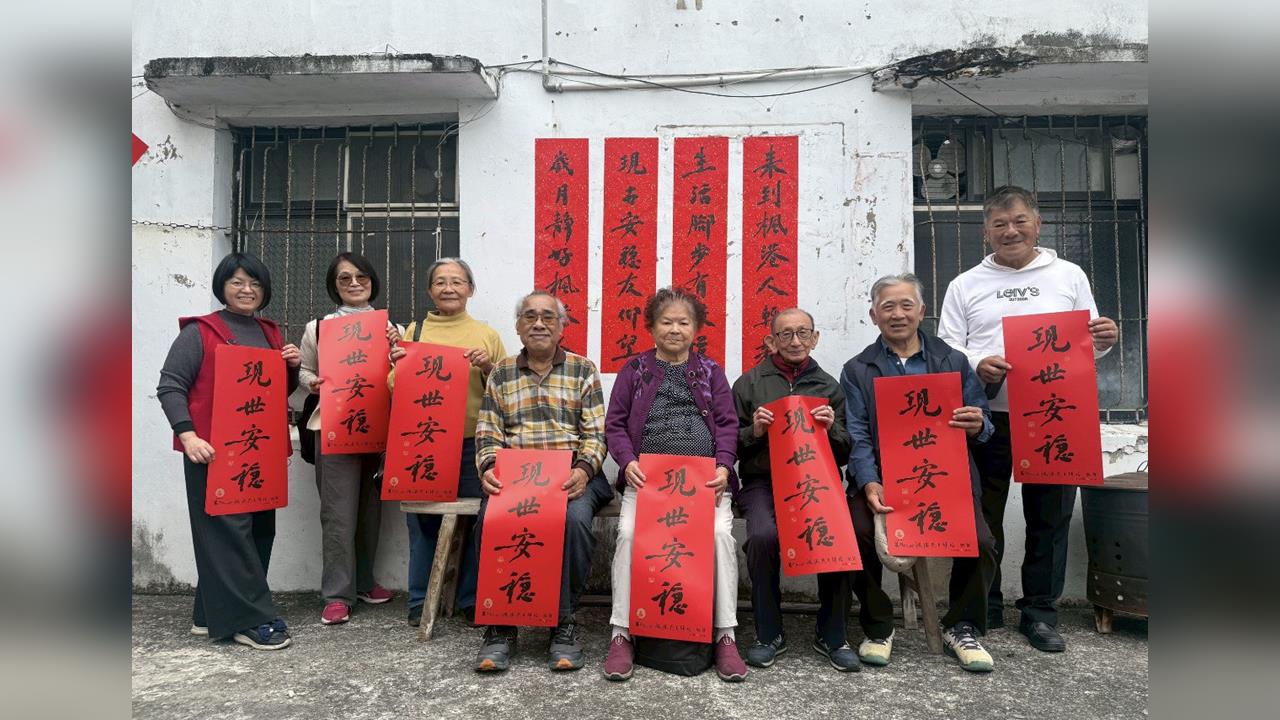 來到楓港人
生活腳步有
現世安穩友仰望
歲月靜好楓
現世安穩
現世安穩
現世安穩
現世安穩
現世安穩
現世安穩
現世安穩
現世安穩
LEIV'S
OUTDOOR